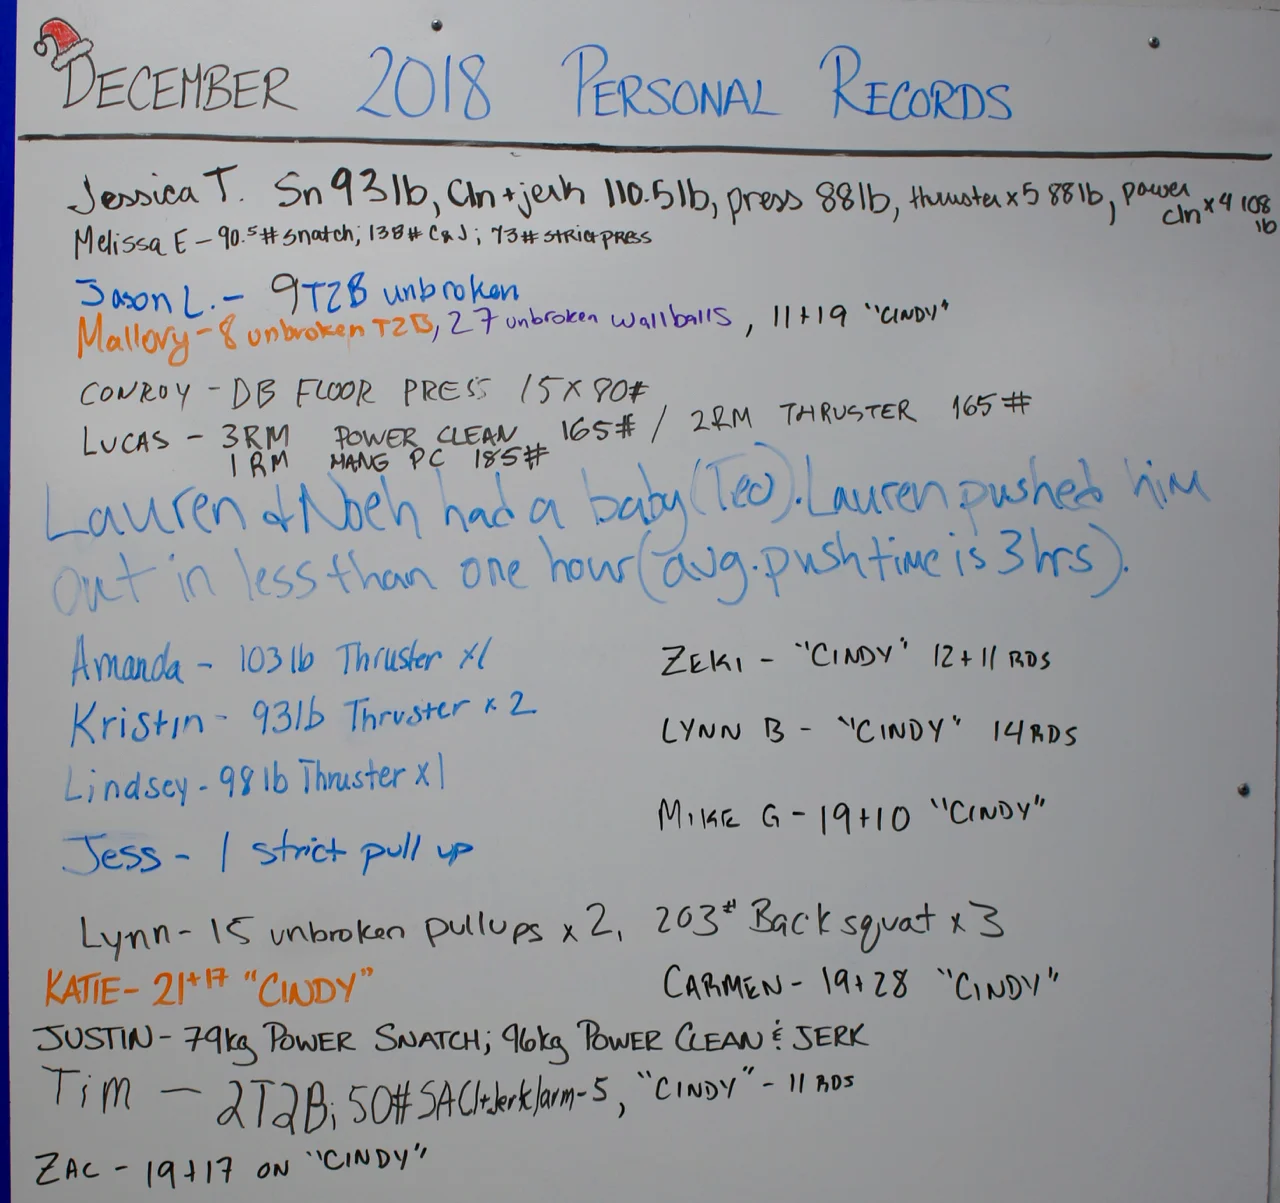 DECEMBER 2018 PERSONAL RECORDS
Jessica T. Sn 93 lb, Cln + jerk 110.5 lb, press 88 lb, thruster x 5 88 lb, power cln x 4 108 lb
Melissa E - 90.5# snatch; 138# C&J; 73# STRICT PRESS
Jason L. - 9 T2B unbroken
Mallory - 8 unbroken T2B, 27 unbroken wallballs, 11+19 "CINDY"
CONROY - DB FLOOR PRESS 15 X 80#
LUCAS - 3RM POWER CLEAN 165# / 2RM THRUSTER 165#
1RM HANG PC 185#
Lauren & Noeh had a baby (Teo). Lauren pushed him
out in less than one hour (avg. push time is 3 hrs).
Amanda - 103 lb Thruster x1
Kristin - 93 lb Thruster x 2
Lindsey - 98 lb Thruster x1
Jess - 1 strict pull up
ZEKI - "CINDY" 12+11 RDS
LYNN B - "CINDY" 14 RDS
MIKE G - 19+10 "CINDY"
Lynn - 15 unbroken pullups x 2, 203# Back squat x 3
KATIE - 21+17 "CINDY"
CARMEN - 19+28 "CINDY"
JUSTIN - 79kg POWER SNATCH; 96kg POWER CLEAN & JERK
Tim - 2T2B; 50# SA Cl+Jerk/arm-5, "CINDY" - 11 RDS
ZAC - 19+17 ON "CINDY"